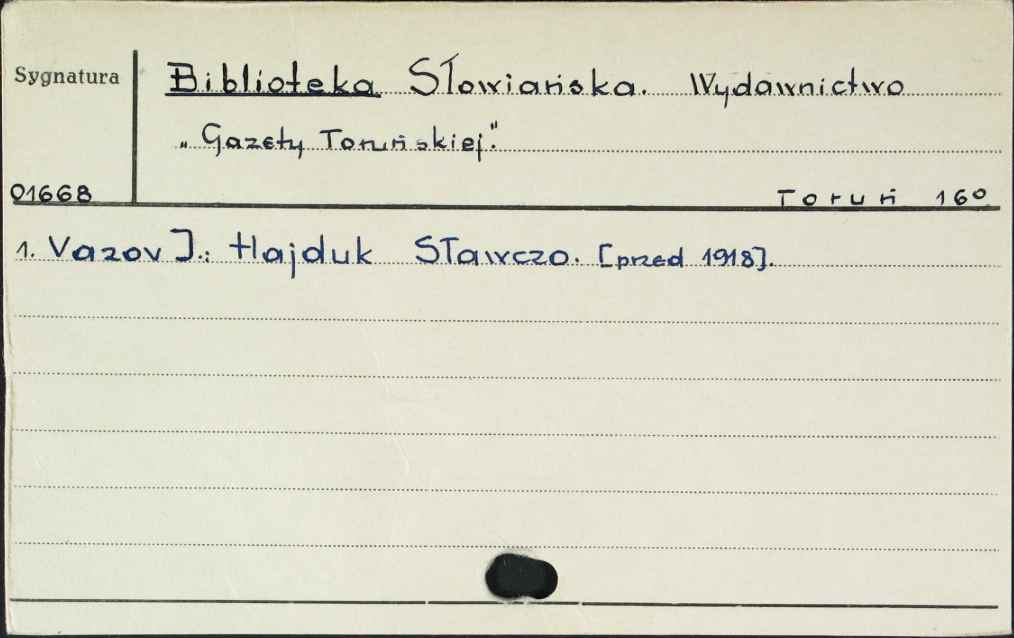 Sygnatura
Biblioteka Słowiańska. Wydawnictwo
„Gazety Toruńskiej."
01668
Toruń 16°
1. Vazov J.: Hajduk Sławczo. [przed 1918].